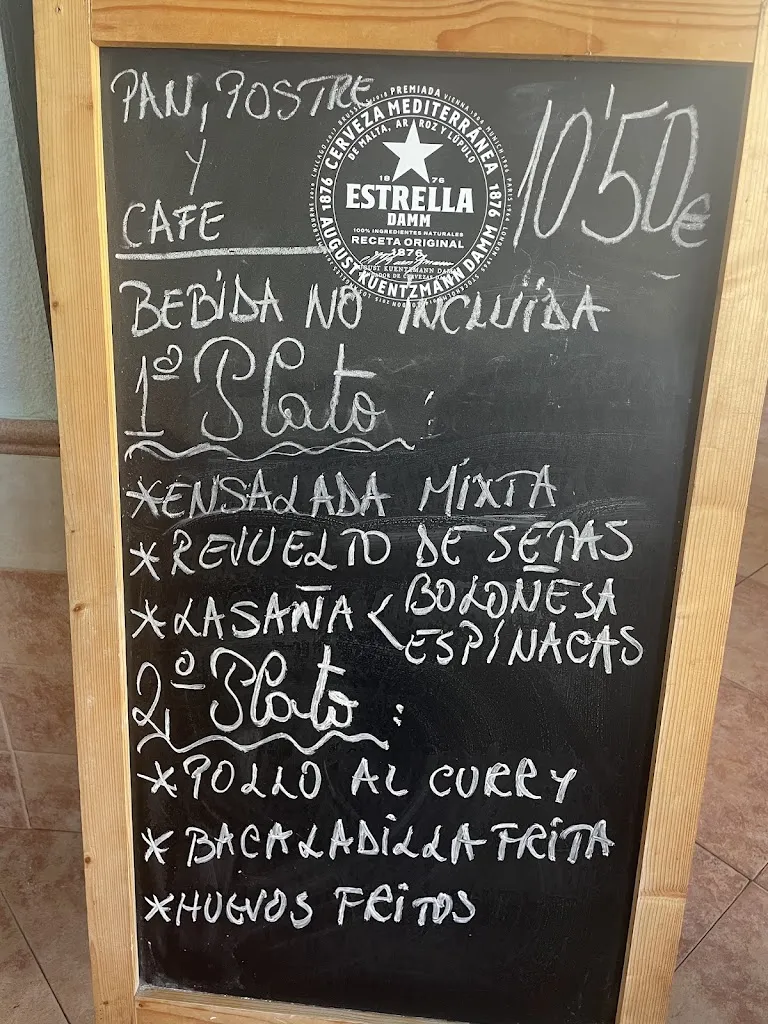 PAN, POSTRE
Y
CAFE
10'50€
PREMIADA
CERVEZA MEDITERRÁNEA
DE MALTA, ARROZ Y LÚPULO
1876
1876
18 76
ESTRELLA
DAMM
100% INGREDIENTES NATURALES
RECETA ORIGINAL
1876
AUGUST KUENTZMANN DAMM
BEBIDA NO INCLUÏDA
1º Plato:
*ENSALADA MIXTA
*REVUELTO DE SETAS
*LASAÑA < BOLOÑESA
ESPINACAS
2º Plato:
*POLLO AL CURRY
*BACALADILLA FRITA
*HUEVOS FRITOS